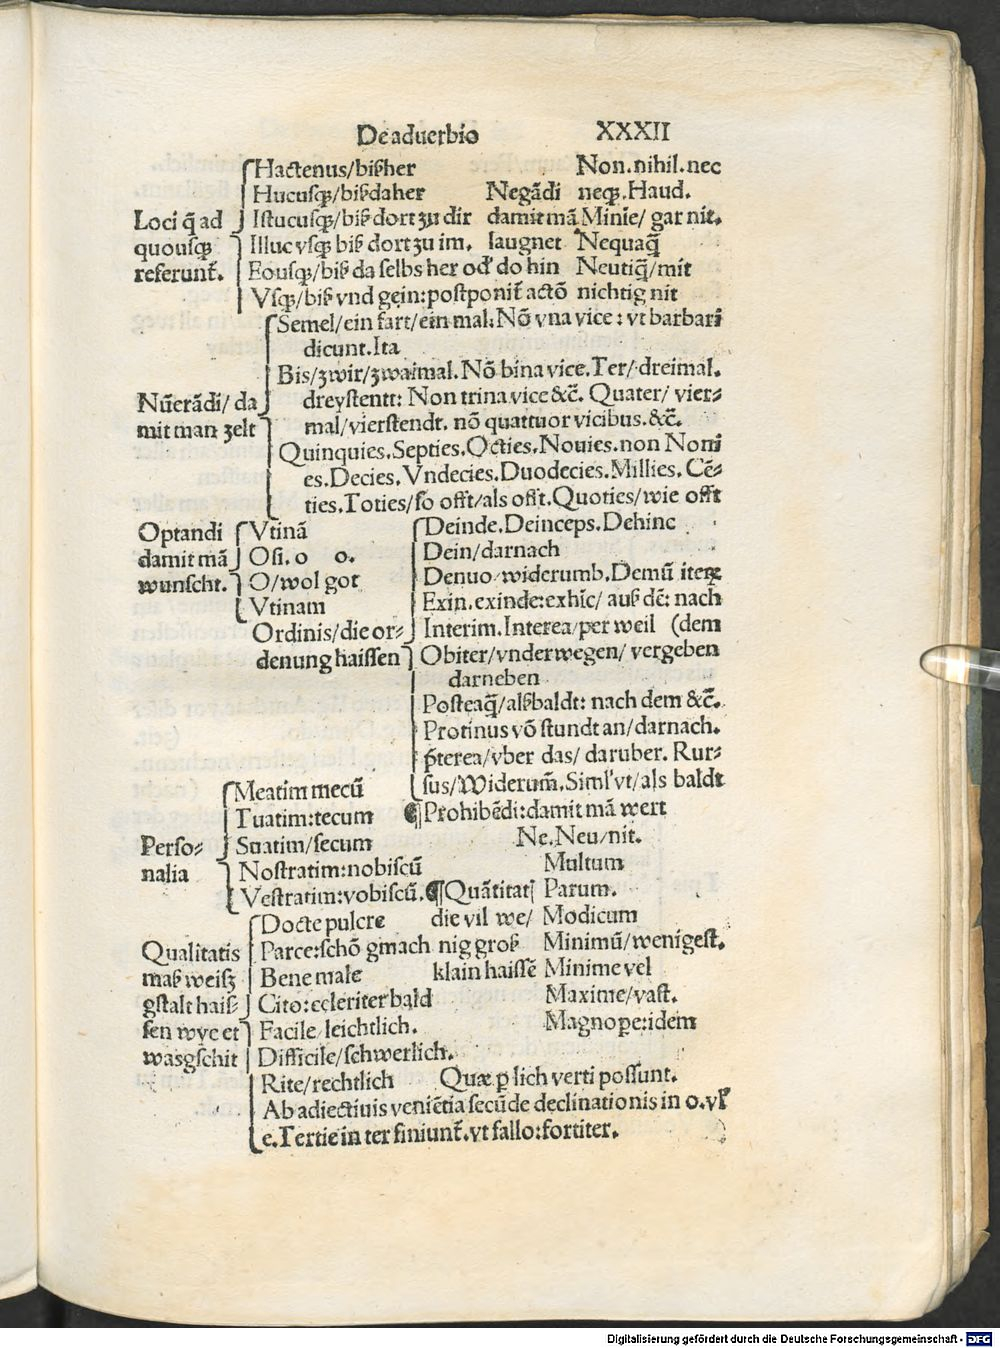 De aduerbio XXXII
Loci q̄ ad
quousqꝫ
referunt̄.
Hactenus/bißher
Hucusqꝫ/bißdaher
Istucusqꝫ/biß dort zu dir
Illuc vsqꝫ biß dort zu im.
Eousqꝫ/biß da selbs her od' do hin
Vsqꝫ/biß vnd gein: postponit̄ actō
Negādi
damit mā
laugnet
Non. nihil. nec
neqꝫ. Haud.
Minīe/ gar nit.
Nequaq̄
Neutiq̄/mit
nichtig nit
Nūerādi/ da
mit man zelt
Semel/ein fart/ein mal: Nō vna vice: vt barbari
dicunt. Ita
Bis/zwir/zwaimal. Nō bina vice. Ter/dreimal.
dreystentt: Non trina vice &c̄. Quater/ vier⸗
mal/vierstendt. nō quattuor vicibus. &c̄.
Quinquies. Septies. Octies. Nouies. non Noni
es. Decies. Vndecies. Duodecies. Millies. Cē⸗
ties. Toties/so offt/als offt. Quoties/wie offt
Optandi
damit mā
wunscht.
Vtinā
Osi. o o.
O/wol got
Vtinam
Ordinis/die or⸗
denung haissen
Deinde. Deinceps. Dehinc
Dein/darnach
Denuo widerumb. Demū iteꝝ
Exin. exinde: exhīc/ auß dē: nach
Interim. Interea/per weil (dem
Obiter/vnder wegen/ vergeben
darneben
Posteaq̄/alßbaldt: nach dem &c̄.
Protinus vō stundt an/darnach.
p̄terea/vber das/ daruber. Rur⸗
sus/Widerum̄. Siml' vt/als baldt
¶Prohibēdi: damit mā wert
Ne. Neu/nit.
Perso⸗
nalia
Meatim mecū
Tuatim: tecum
Suatim/secum
Nostratim: nobiscū
Vestratim: vobiscū.
¶Quātitat
die vil we/
nig groß
klain haissē
Multum
Parum.
Modicum
Minimū/wenigest.
Minime vel
Maxime/vast.
Magnopere: idem
Qualitatis
maß weiß
gstalt haiß⸗
sen wye et
was gschit
Docte pulcre
Parce: schō gmach
Bene male
Cito: celeriter bald
Facile leichtlich.
Difficile/schwerlich.
Rite/rechtlich Quæ ꝑ lich verti possunt.
Ab adiectiuis veniētia secūde declinationis in o. vl'
e. Tertie in ter finiunt̄. vt fallo: fortiter.
Digitalisierung gefördert durch die Deutsche Forschungsgemeinschaft - DFG